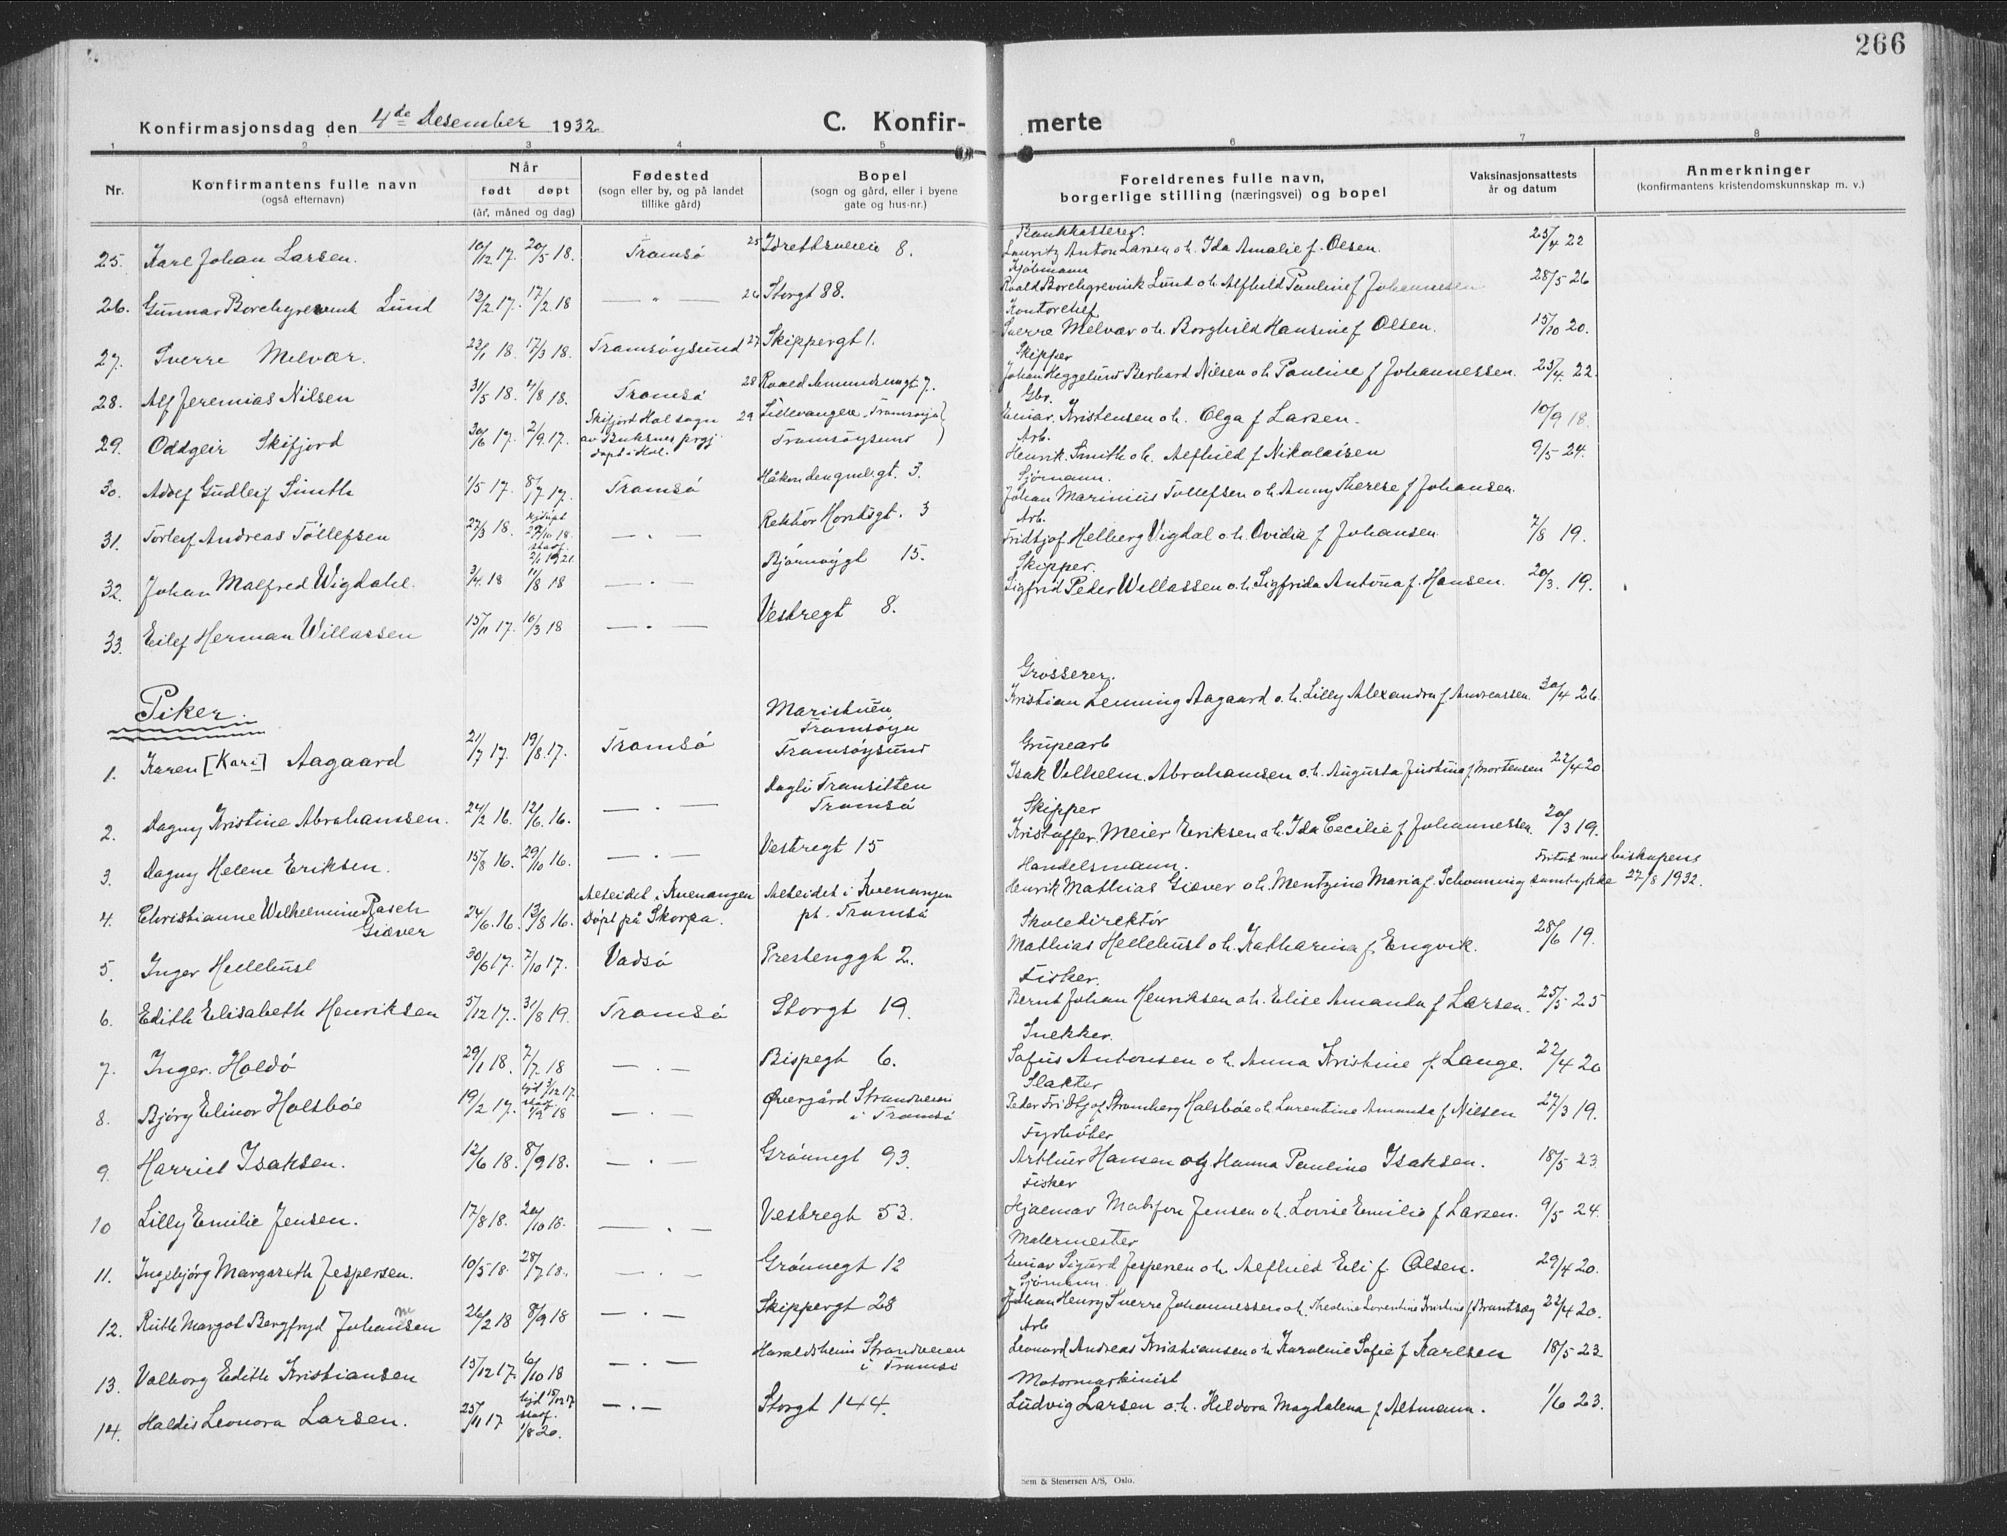 266
Konfirmasjonsdag den 4de Desember 1932.
C. Konfirmerte
1 2 3 4 5 6 7 8
Nr.
Konfirmantens fulle navn
(også efternavn)
Når
født døpt
(år, måned og dag)
Fødested
(sogn eller by, og på landet
tillike gård)
Bopel
(sogn og gård, eller i byene
gate og hus-nr.)
Foreldrenes fulle navn,
borgerlige stilling (næringsvei) og bopel
Vaksinasjonsattests
år og datum
Anmerkninger
(konfirmantens kristendomskunnskap m. v.)
25. Karl Johan Larsen. 10/12 17. 20/5 18. Tromsø 25 Idrettsveien 8. Bankkasserer. Lauritz Anton Larsen o.h. Ida Amalie f. Olsen. 25/4 22
26. Gunnar Borchgrevink Lund 12/2 17. 17/2 18 — " — 26 Storgt 88. Kjøbmann Roald Borchgrevink Lund o.h. Alfhild Pauline f Johannesen 28/5 26
27. Sverre Melvær. 22/1 18. 17/3 18. Tromsøysund 27 Skippergt 1. Kontorchef Sverre Melvær o.h. Borghild Hansine f Olsen. 15/10 20.
28. Alf Jeremias Nilsen 31/5 18. 4/8 18. Tromsø 28 Roald Amundsengt 7. Skipper Johan Heggelund Berhard Nilsen o.h. Pauline f Johannessen. 23/4. 22.
29. Oddgeir Skifjord 30/6 17. 2/9. 17. Skifjord Hol sogn av Buksnes prgj. døpt i Hol. 29 Lillevangen, Tromsøya Tromsøysund Gbr. Einar Kristensen o.h. Olga f Larsen. 10/9 18.
30. Adolf Gudleif Smith 1/5 17. 8/7 17. Tromsø Håkon dengamlesgt. 3. Arb. Henrik Smith o.h. Alfhild f Nikolaisen 9/5 24.
31. Torleif Andreas Tollefsen 27/3 18. hjdøpt 29/10 18. stadf. 2/1 1921. — " — Rektor Horstsgt. 3 Sjømann. Johan Marinius Tollefsen o.h. Anny Therese f Johansen.
32. Johan Malfred Wigdahl. 3/4. 18 11/8 18 — " — Bjørnøygt 15. Arb. Fridtjof Helberg Vigdal o.h. Ovidia f Johansen. 7/8 19.
33. Eilef Herman Willassen 15/11 17. 10/3 18 — " — Vestregt 8. Skipper. Sigfrid Peder Willassen o.h. Sigfrida Antona f. Hansen. 20/3. 19.
Piker.
1. Karen [Kari] Aagaard 21/7 17. 19/8. 17. Tromsø Maristuen Tromsøya Tromsøysund Grosserer. Kristian Lemming Aagaard o.h. Lilly Alexandra f Andreassen. 30/4 26.
2. Dagny Kristine Abrahamsen. 24/2 16. 12/6. 16. — " — Dagli Transitten Tromsø Grupearb Isak Vilhelm Abrahamsen o.h. Augusta Justina f. Mortensen 22/4 20
3. Dagny Helene Eriksen. 15/8 16. 29/10 16. — " — Vestregt 15 Skipper Kristoffer Meier Eriksen o.h. Ida Cecilie f Johannessen 20/3 19.
4. Christianne Wilhelmine Rasch Giæver 24/6. 16. 13/8 16. Alteidet i Kvenangen Døpt på Skorpa. Alteidet i Kvenangen pt. Tromsø Handelsmann. Henrik Mathias Giæver o.h. Mentzine Maria f. Schonning Fritat med biskopens samtykke 27/8 1932.
5. Inger Hellehust 30/6 17. 7/10 17. Vadsø Prestenggt 2. Skoledirektør Mathias Hellehust o.h. Katharina f. Engvik. 28/6 19.
6. Edith Elisabeth Henriksen 5/12 17. 31/8 19. Tromsø Storgt 19. Fisker. Bernt Johan Henriksen o.h. Elise Amanda f Larsen. 25/5 25
7. Inger Holdø 29/1 18. 7/7. 18 — " — Bispegt 6. Snekker. Sofus Antonsen o.h. Anna Kristine f. Lange. 22/4 20
8. Bjørg Elinor Holsbøe 19/2 17. hjd 3/12 17. stadf. 1/9 18 — " — Øvergård Strandveien i Tromsø Slakter Peder Fridtjof Stromberg Holsbøe o.h. Lorentine Amanda f. Nilsen 27/3 19.
9. Harriet Isaksen. 12/6 18. 8/9 18. — " — Grønnegt 93. Fyrbøter Arthur Hansen og Hanna Pauline Isaksen. 18/5 23.
10 Lilly Emilie Jensen. 17/8 18. 20/10 18. — " — Vestregt 53. Fisker Hjalmar Jensen o.h. Lovise Emilie f Larsen. 9/5 24.
11. Ingebjørg Margareth Jespersen. 10/5 18. 28/7 18. — " — Grønnegt 12 Malermester Einar Sigurd Jespersen o.h. Alfhild Eli f. Olsen. 29/4 20.
12. Ruth Margot Bergfryd Johansen 26/2 18 8/9 18 — " — Skippergt 28 Sjømann. Johan Henry Sverre Johannessen o.h. Theoline Lorentine Kristine f. Brantsæg 22/4 20.
13. Valborg Edith Kristiansen 15/12 17. 6/10 18 — " — Haraldsheim Strandveien i Tromsø Arb Leonard Andreas Kristiansen o.h. Karoline Sofie f Karlsen 18/5 23
14. Haldis Leonora Larsen. 25/11 17 hjd 15/12 17 stadf. 1/8 20. — " — Storgt 144. Motormaskinist Ludvig Larsen o.h. Heldora Magdalena f Altmann. 1/6 23.
Sem & Stenersen A/S, Oslo.